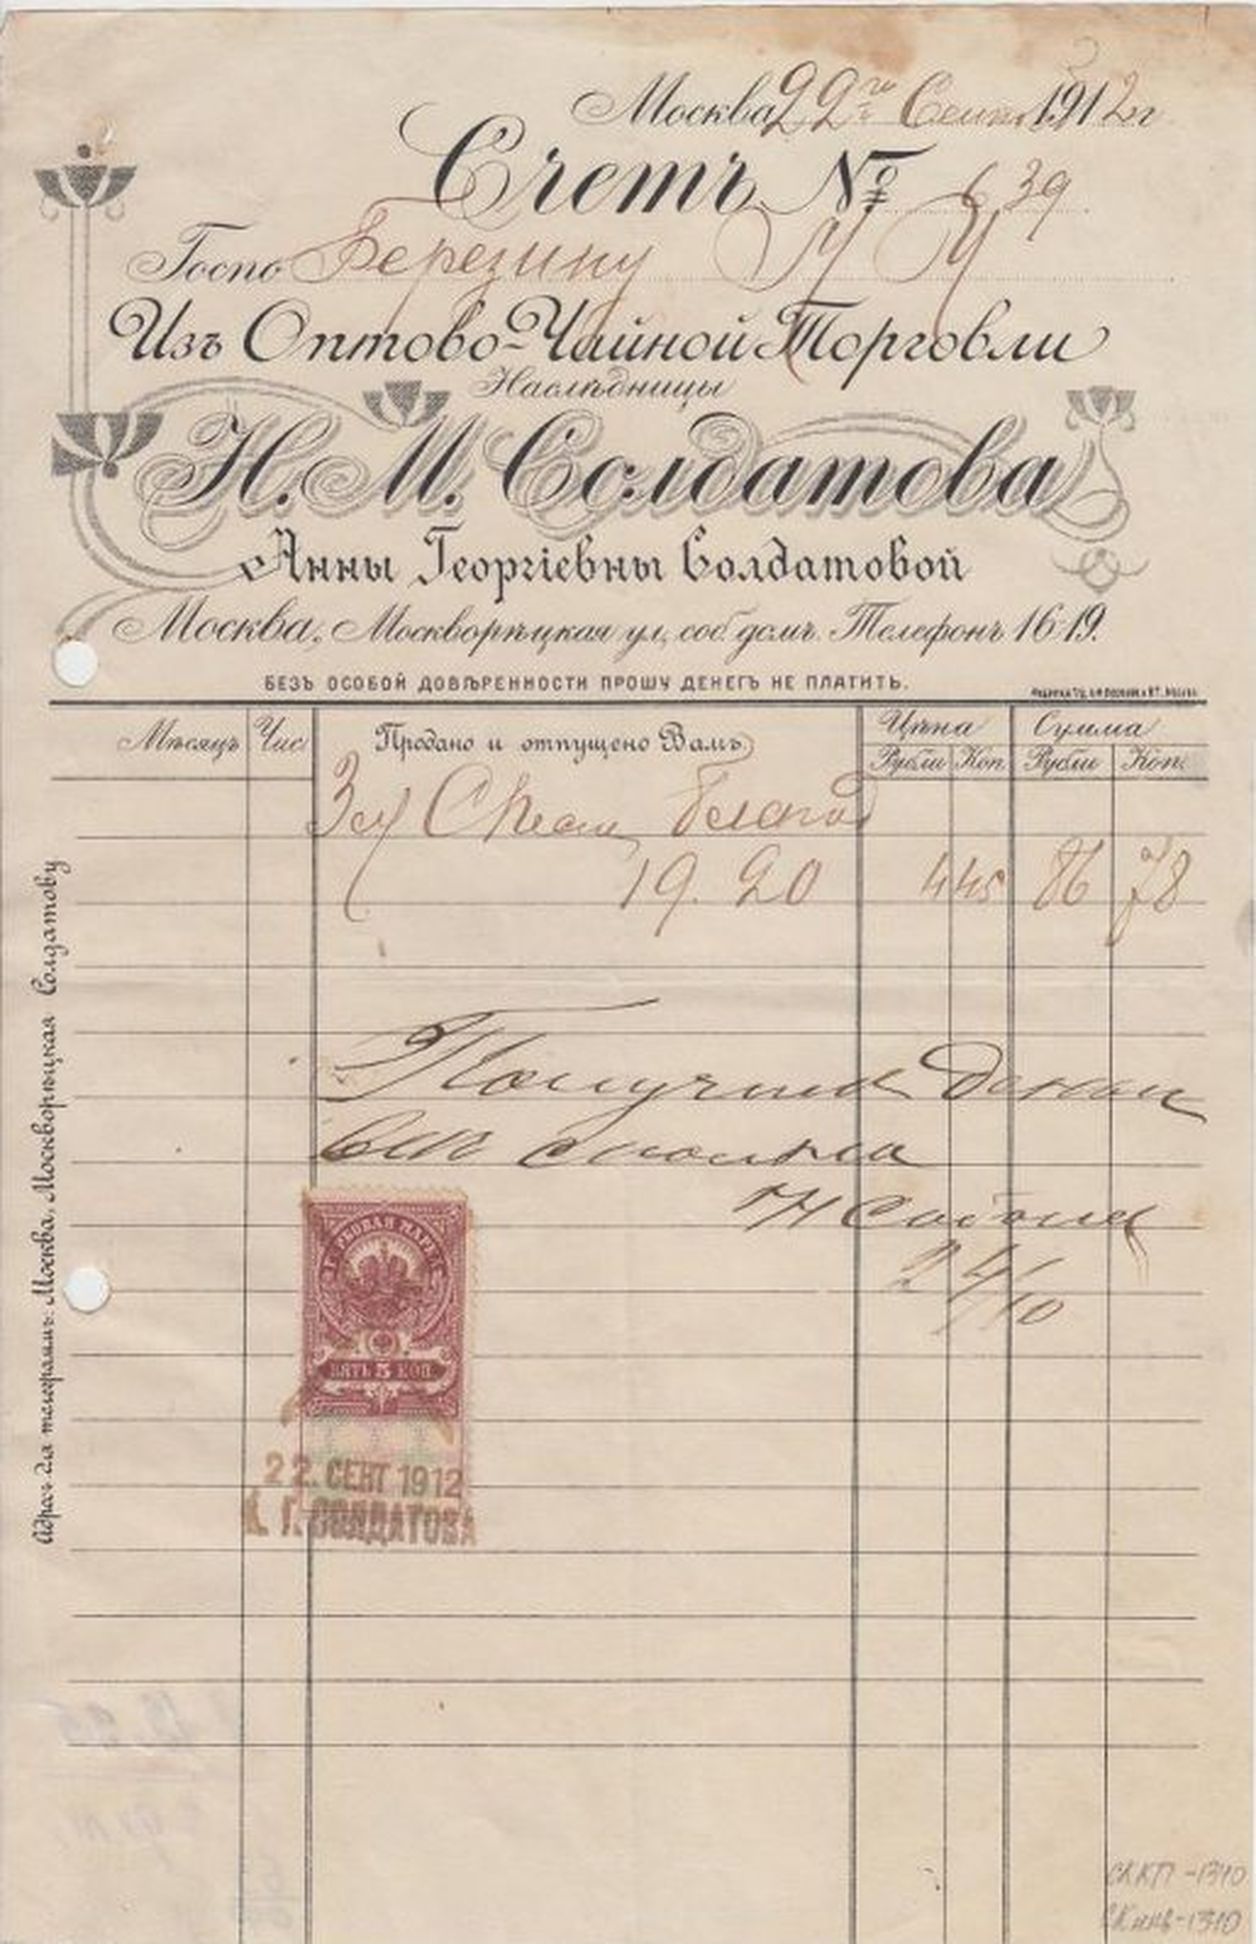 Москва 22го Сент. 1912 г
Счетъ № 639
Госпо Березину
Изъ Оптово-Чайной Торговли
Наслѣдницы
Н. М. Солдатова
Анны Георгіевны Солдатовой
Москва, Москворѣцкая ул, соб. домъ. Телефонъ 16-19.
БЕЗЪ ОСОБОЙ ДОВѢРЕННОСТИ ПРОШУ ДЕНЕГЪ НЕ ПЛАТИТЬ.
Мѣсяцъ Чис Продано и отпущено Вамъ Цѣна Сумма
Рубли Коп. Рубли Коп.
19.20 4 45 86 78
Получилъ деньги
24/10
ГЕРБОВАЯ МАРКА
ПЯТЬ 5 КОП.
22. СЕНТ 1912
А. Г. СОЛДАТОВА
Адресъ для телеграммъ: Москва, Москворѣцкая Солдатову
СККП-1340
СКинв-1340